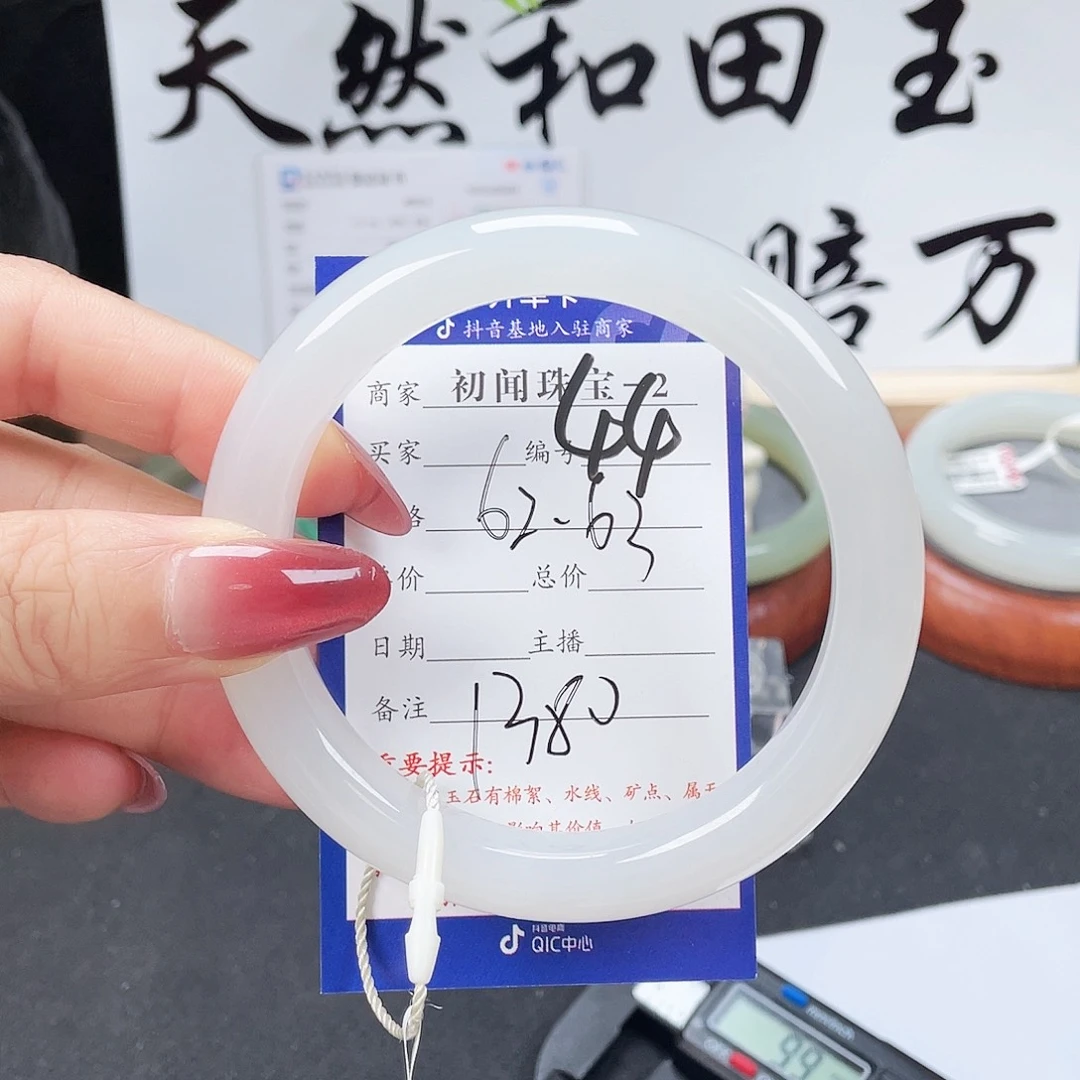 天然和田玉
赔万
抖音基地入驻商家
商家 初闻珠宝-2
买家 编号 44
62-63
价 总价
日期 主播
备注 1380
重要提示:
玉石有棉絮、水线、矿点、属于
影响其价值
抖音电商
QIC中心